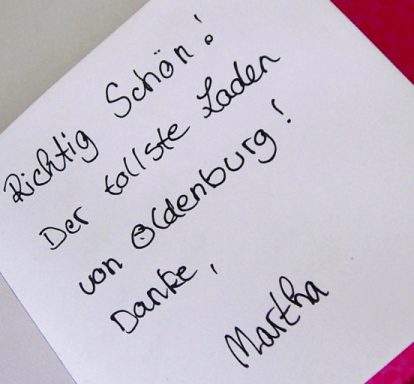 Richtig Schön!
Der tollste Laden
von Oldenburg!
Danke,
Martha